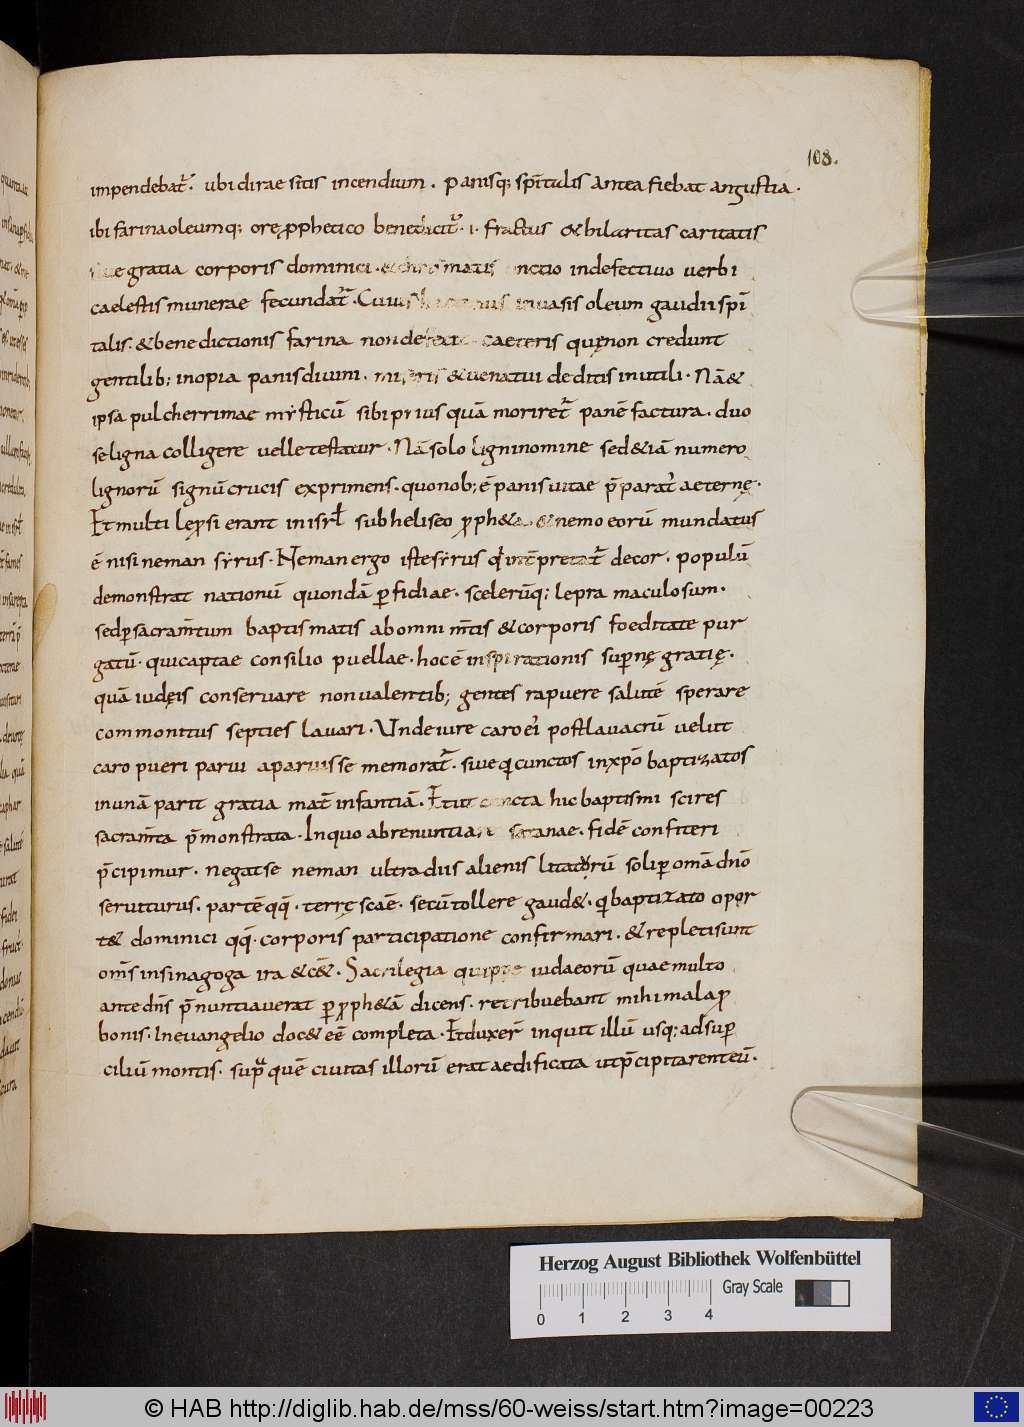 108.
impendebat᷑. ubi dirae sitis incendium. panisq; sp̄italis antea fiebat angustia.
ibi farina oleumq; ore ꝓphetico benedicit᷑. i. fractus & hilaritas caritatis
gratia corporis dominici . indefectivo verbi
caelestis munerae fecundat᷑. Cuius in vasis oleum gaudii spī
talis. & benedictionis farina non caeteris quę non credunt
gentilib; inopia panis divini. & venatui deditis inutili. Nā &
ipsa pulcherrimae mysticū sibi prius quā moriret᷑ panē factura. duo
se ligna colligere velle testatur. Nā solo ligni nomine sed & iā numero
lignorū signū crucis exprimens. quo nob; ē panis vitae p̄parat᷑ aeternę.
Et multi lepsi erant in isrl̄ sub heliseo ꝓph&a. & nemo eorū mundatus
ē nisi neman syrus. Neman ergo iste syrus qͥ int̄pretat᷑ decor. populū
demonstrat nationū quondā ꝑfidiae. scelerūq; lepra maculosum.
sed ꝑ sacram̄tum baptismatis ab omni m̄tis & corporis foeditate pur
gatū. qui captae consilio puellae. hoc ē inspirationis suꝑnę gratię.
quā iudęis conservare non valentib; gentes rapuere salutē sperare
commonitus septies lavari. Unde iure caro ei᷒ post lavacrū velut
caro pueri parvi aparuisse memorat᷑. sive qͥ cunctos in xp̄o baptizatos
in unā parit gratia mat̄ infantiā. Et ut cuncta hic baptismi scires
sacram̄ta p̄monstrata. In quo abrenuntiari satanae. fidē confiteri
p̄cipimur. negat se neman ultra diis alienis litatorū soli ꝑ omā dn̄o
serviturus. partē qq̄. terrę scāe. secū tollere gaud&. qͥ baptizato opor
t& dominici qq̄. corporis participatione confirmari. & repleti sunt
om̄s in sinagoga ira & cē&. Sacrilegia quippe iudaeorū quae multo
ante dn̄s p̄nuntiaverat ꝑ ꝓph&ā dicens. retribuebant mihi mala ꝓ
bonis. In evangelio doc& eē completa. Et duxer̄ inquit illū usq; ad suꝑ
ciliū montis. supͣ quē civitas illorū erat aedificata ut p̄cipitarent eū.
Herzog August Bibliothek Wolfenbüttel
Gray Scale
0 1 2 3 4
© HAB http://diglib.hab.de/mss/60-weiss/start.htm?image=00223